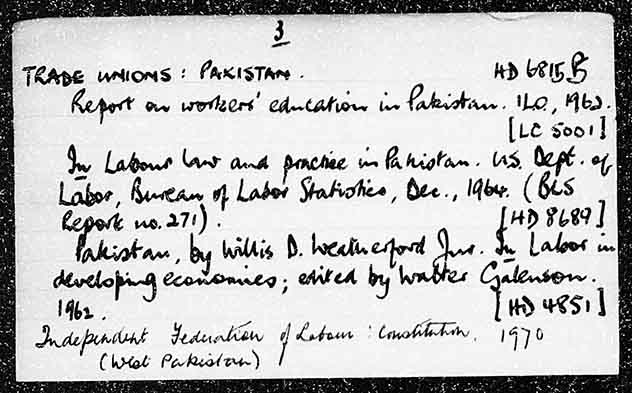 3
TRADE UNIONS: PAKISTAN. HD 6815 P5
Report on workers' education in Pakistan. ILO., 1962.
[LC 5001]
In Labour law and practice in Pakistan. U.S. Dept. of
Labor, Bureau of Labor Statistics, Dec., 1964. (BLS
Report no. 271). [HD 8689]
Pakistan, by Willis D. Weatherford Jnr. In Labor in
developing economies; edited by Walter Galenson.
1962. [HD 4851]
Independent Federation of Labour: Constitution. 1970
(West Pakistan)